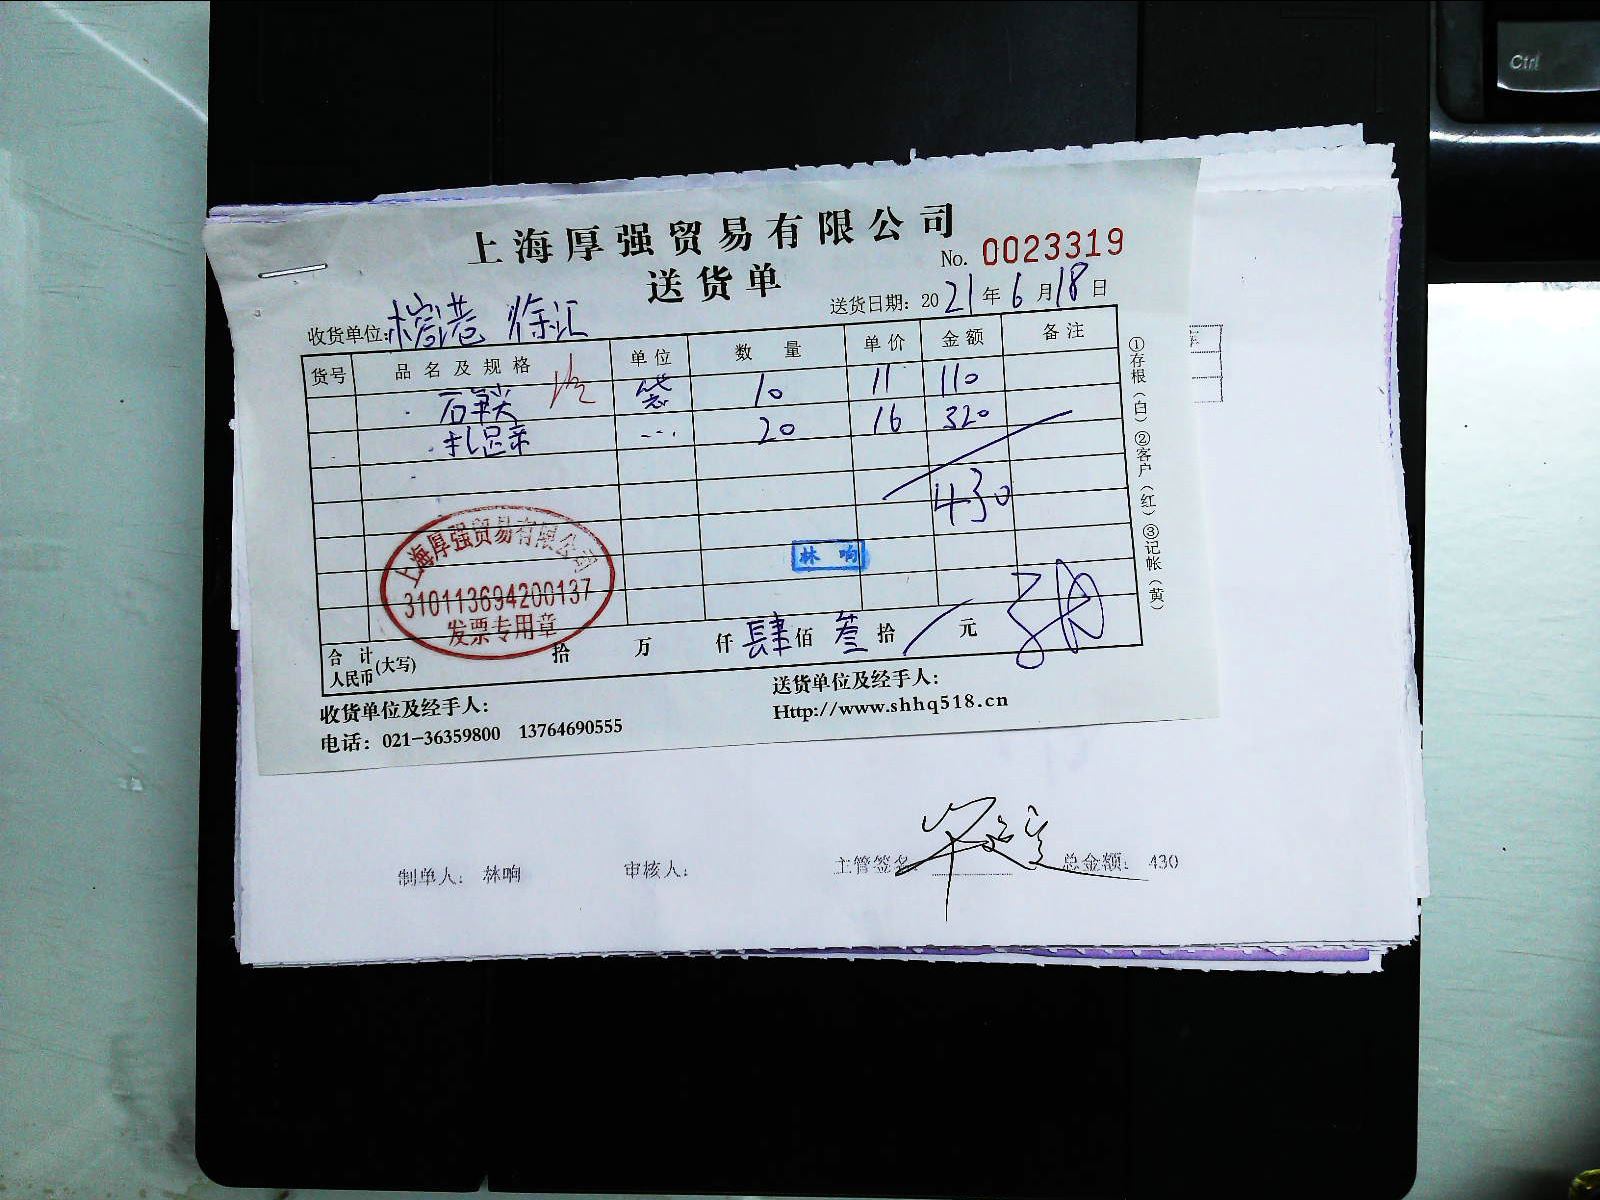 Ctrl
上海厚强贸易有限公司
No. 0023319
送货单
送货日期: 2021年6月18日
收货单位: 徐汇
货号 品名及规格 单位 数量 单价 金额 备注
袋 10 11 110
20 16 320
430
林响
上海厚强贸易有限公司
310113694200137
发票专用章
合计人民币(大写) 拾 万 仟 肆 佰 叁 拾 元
收货单位及经手人:
送货单位及经手人:
电话: 021-36359800 13764690555
Http://www.shhq518.cn
①存根(白)②客户(红)③记帐(黄)
制单人: 林响 审核人: 主管签名: 总金额: 430